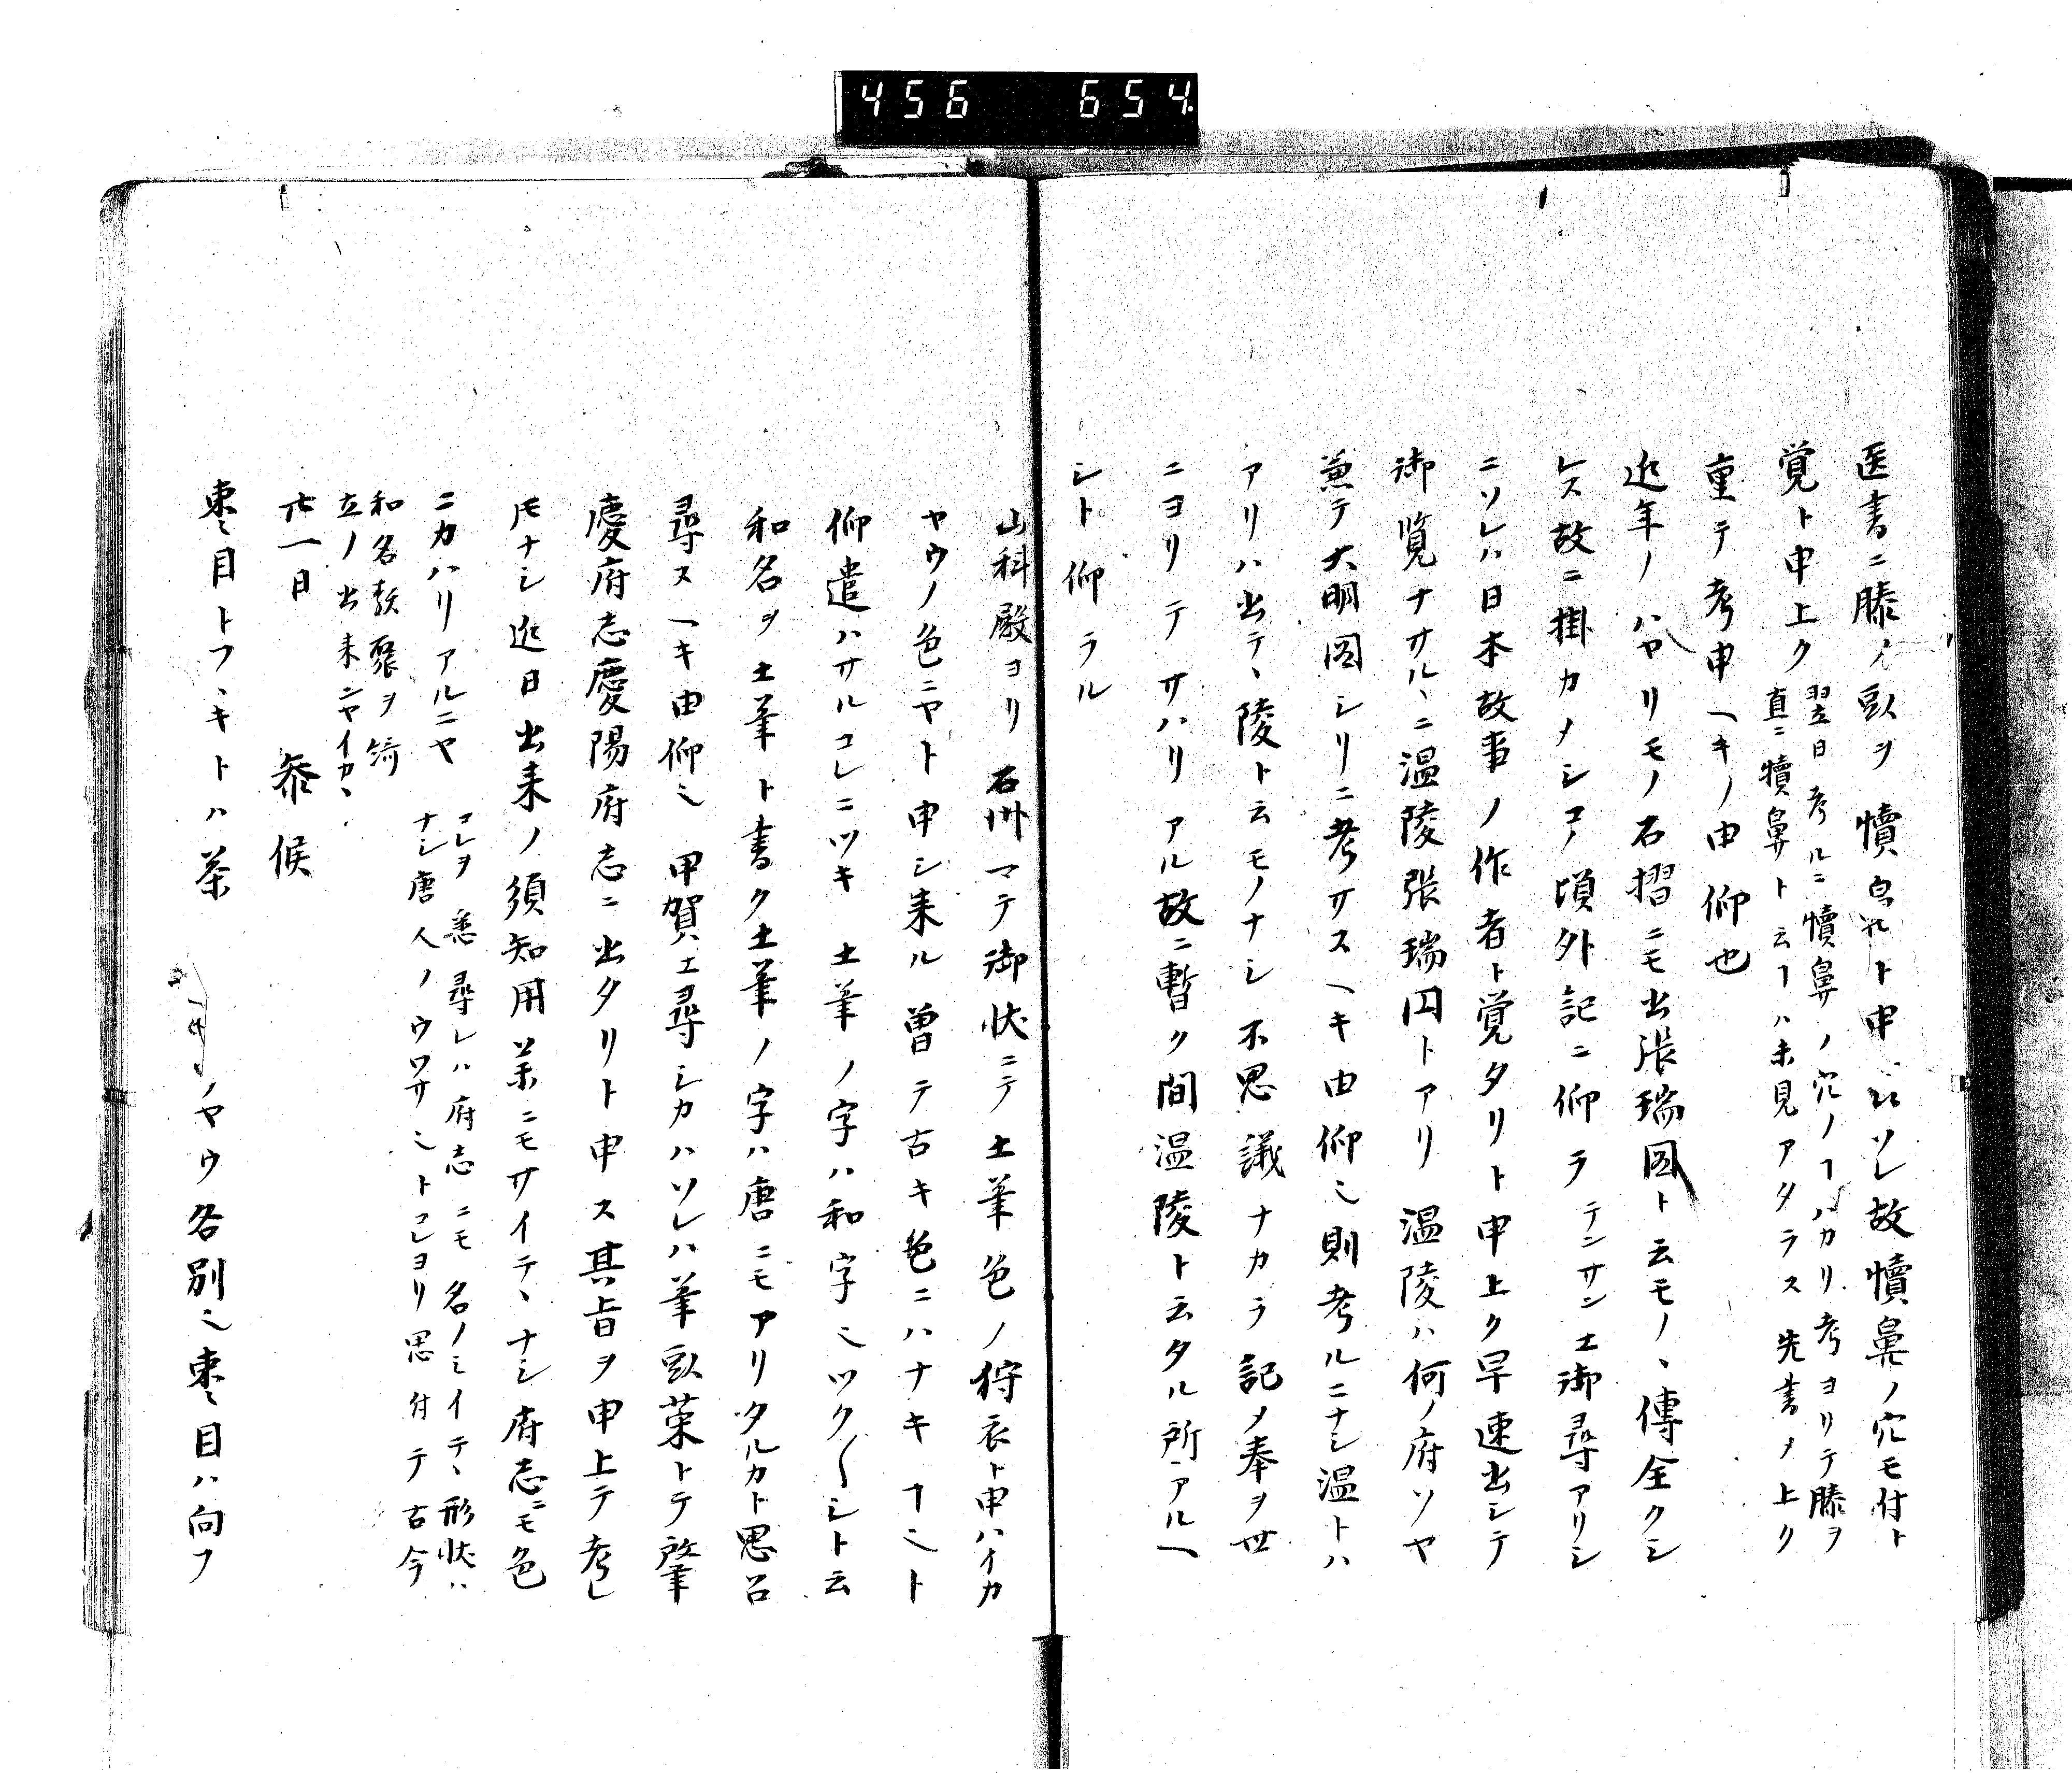 456 654
医書ニ膝ノ臥ヲ犢鼻ト申ソレ故犢鼻ノ穴モ付ト
覚ト申上ク
翌日考ルニ犢鼻ノ穴ノヿハカリ考ヨリテ膝ヲ
直ニ犢鼻ト云ヿハ未見アタラス先書ノ上リ
重テ考申ヘキノ由仰也
近年ノハヤリモノ石摺ニモ出張瑞図ト云モノ、傳全クシ
レス故ニ掛カタシコノ頃外記ニ仰テテンサンエ御尋アリシ
ニソレハ日本故事ノ作者ト覚タリト申上ク早速出シテ
御覧ナサル、ニ温陵張瑞図トアリ温陵ハ何ノ府ソヤ
兼テ大明図シリニ考サスヘキ由仰ミ則考ルニナシ温トハ
アリハ出テ、陵ト云モノナシ不思議ナカラ記メ奉ヲ世
ニヨリテサハリアル故ニ暫ク間温陵ト云タル所アルヘ
シト仰ラル
山科殿ヨリ石州マテ御状ニテ土筆色ノ狩衣ト申ハイカ
ヤウノ色ニヤト申シ来ル曽テ古キ色ニハナキヿミト
仰遣ハサルコレニツキ土筆ノ字ハ和字ミツク〱シト云
和名ヲ土筆ト書ク土筆ノ字ハ唐ニモアリタルカト思召
尋スヘキ由仰ミ甲賀エ尋シカハソレハ筆頭菜トテ肇
慶府志慶陽府志ニ出タリト申ス其旨ヲ申上テ考レ
𪜈ナシ近日出来ノ須知用菜ニモサイテ、ナシ府志ニモ色
ニカハリアルニヤ
コレヲ悉尋レハ府志ニモ名ノミイテ、形状ハ
ナシ唐人ノウワサミトコレヨリ思付テ古今
和名類聚ヲ
立ノ出来ニヤイカヽ
廿一日 参候
棗目トフキトハ茶 ノヤウ各別ミ棗目ハ向フ